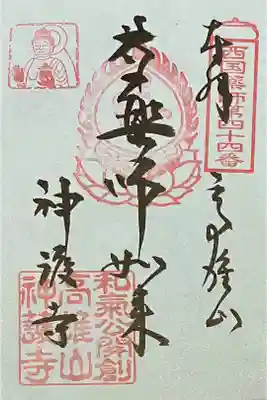 奉拝
高雄山
西国薬師第四十四番
本薬師如来
神護寺
和氣公開創
高雄山
神護寺